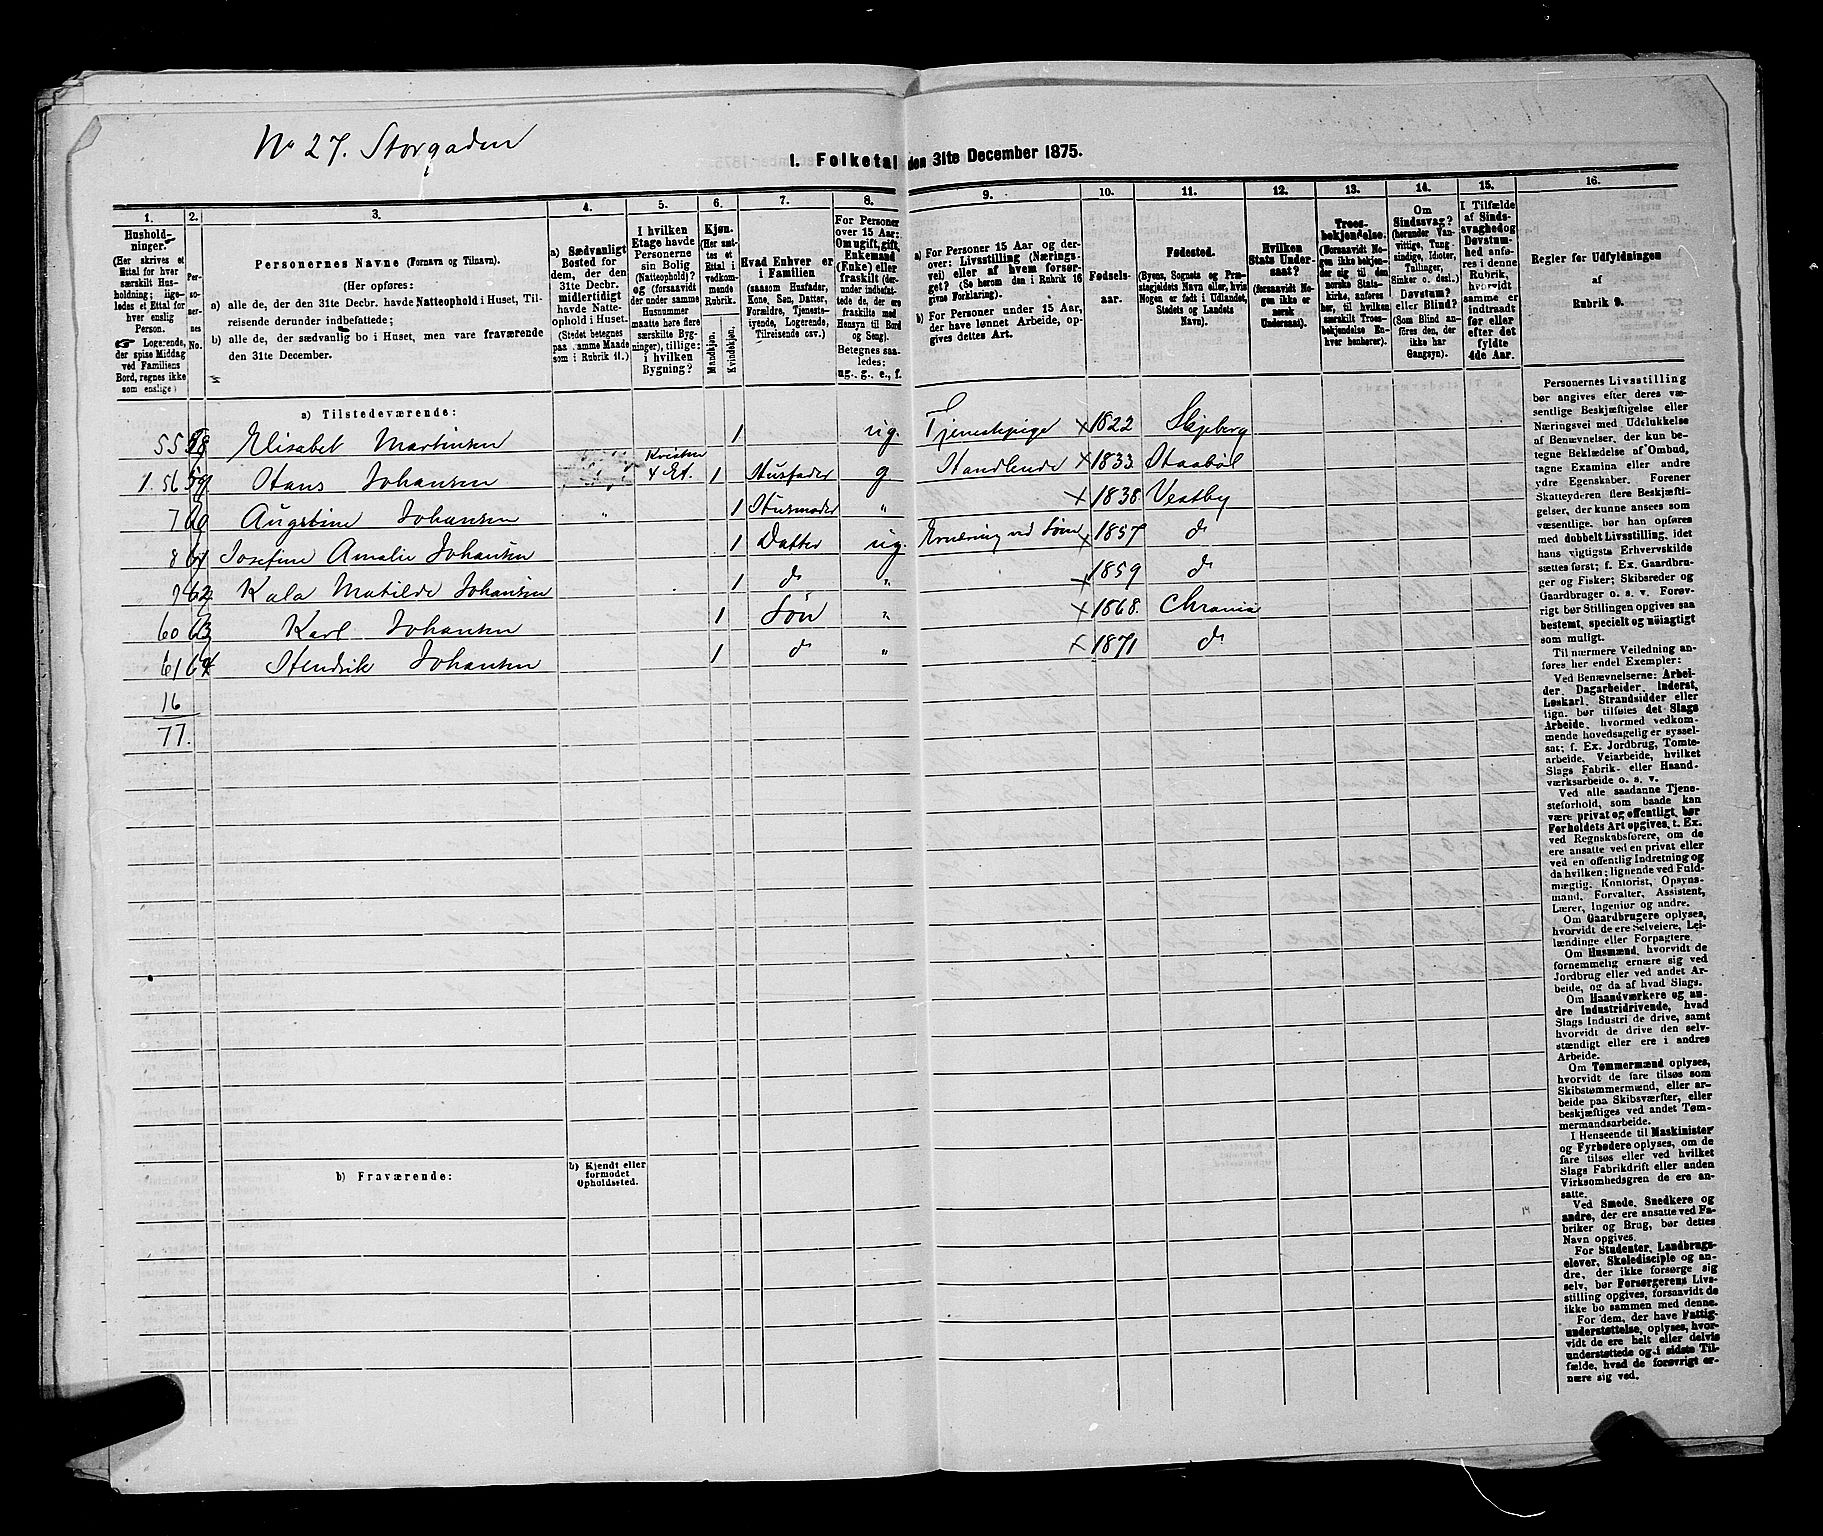 No 27. Storgaden
1. Folketal den 31te December 1875.
1. 2. 3. 4. 5. 6. 7. 8. 9. 10. 11. 12. 13. 14. 15. 16.
Husholdninger.
(Her skrives et Ettal for hver særskilt Husholdning; ligeledes et Ettal for hver enslig Person.
☞ Logerende, der spise Middag ved Familiens Bord, regnes ikke som enslige)
Personernes No.
Personernes Navne (Fornavn og Tilnavn).
(Her opføres:
a) alle de, der den 31te Decbr. havde Natteophold i Huset, Tilreisende derunder indbefattede;
b) alle de, der sædvanlig bo i Huset, men vare fraværende den 31te December.
a) Sædvanligt Bosted for dem, der den 31te Decbr. midlertidigt havde Natteophold i Huset. (Stedet betegnes paa samme Maade som i Rubrik 11.)
I hvilken Etage havde Personerne sin Bolig (Natteophold)? og (forsaavidt der under samme Husnummer maatte høre flere særskilte Bygninger), tillige: i hvilken Bygning?
Kjøn.
(Her sættes et Ettal i vedkommende Rubrik.
Mandkjøn.
Kvindekjøn.
Hvad Enhver er i Familien
(saasom Husfader, Kone, Søn, Datter, Forældre, Tjenestetyende, Logerende, Tilreisende osv.)
For Personer over 15 Aar: Om ugift, gift, Enkemand (Enke) eller fraskilt (derunder indbefattede de, der ere fraskilte med Hensyn til Bord og Seng).
Betegnes saaledes: ug., g., e., f.
a) For Personer 15 Aar og derover: Livsstilling (Næringsvei) eller af hvem forsørget? (Se herom den i Rubrik 16 givne Forklaring).
b) For Personer under 15 Aar, der have lønnet Arbeide, opgives dettes Art.
Fødselsaar.
Fødested.
(Byens, Sognets og Præstegjeldets Navn eller, hvis Nogen er født i Udlandet, Stedets og Landets Navn).
Hvilken Stats Undersaat?
(forsaavidt Nogen ikke er norsk Undersaat).
Troesbekjendelse.
(Forsaavidt Nogen ikke bekjender sig til den norske Statskirke, anføres her, til hvilken særskilt Troesbekjendelse Enhver henhører).
Om Sindssvag? (herunder Vanvittige, Tungsindige, Idioter, Tullinger, Sinker o. desl.) Døvstum? eller Blind?
(Som Blind anføres den, der ikke har Gangsyn).
I Tilfælde af Sindssvaghed og Døvstumhed anføres i denne Rubrik, hvorvidt samme er indtraadt før eller efter det fyldte 4de Aar.
Regler for Udfyldningen af Rubrik 9.
a) Tilstedeværende:
55 58 Elisabet Martinsen 1 ug. Tjenestepige × 1822 Skjeberg
1. 56 59 Hans Johansen Kvisten 4 Et. 1 Husfader g Handlende × 1833 Haabøl
7 60 Augstine Johansen " 1 Husmoder " × 1838 Vestby
8 61 Josefine Amalie Johansen 1 Datter ug. Ernæring ved Søm × 1857 do
9 62 Kala Matilde Johansen 1 do " × 1859 do
60 63 Karl Johansen 1 Søn " × 1868. Chrania
61 64 Hendrik Johansen 1 do " × 1871 do
16
77.
b) Fraværende:
b) Kjendt eller formodet Opholdssted.
Personernes Livsstilling bør angives efter deres væsentlige Beskjæftigelse eller Næringsvei med Udelukkelse af Benævnelser, der kun betegne Beklædelse af Ombud, tagne Examina eller andre ydre Egenskaber. Forener Skatteyderen flere Beskjæftigelser, der kunne ansees som væsentlige, bør han opføres med dobbelt Livsstilling, idet hans vigtigste Erhvervskilde sættes først; f. Ex. Gaardbruger og Fisker; Skibsreder og Gaardbruger o. s. v. Forøvrigt bør Stillingen opgives saa bestemt, specielt og nøiagtigt som muligt.
Til nærmere Veiledning anføres her endel Exempler:
Ved Benævnelserne: Arbeider, Dagarbeider, Inderst, Løskarl, Strandsidder eller lign. bør tilføies det Slags Arbeide, hvormed vedkommende hovedsagelig er sysselsat; f. Ex. Jordbrug, Tomtearbeide, Veiarbeide, hvilket Slags Fabrik- eller Haandværksarbeide o. s. v.
Ved alle saadanne Tjenesteforhold, som baade kan være privat og offentligt, bør Forholdets Art opgives, t. Ex. ved Regnskabsførere, om de ere ansatte ved en privat eller ved en offentlig Indretning og da hvilken; lignende ved Fuldmægtig, Kontorist, Opsynsmand, Forvalter, Assistent, Lærer, Ingeniør og andre.
Om Gaardbrugere oplyses, hvorvidt de ere Selveiere, Leilændinge eller Forpagtere.
Om Husmænd, hvorvidt de fornemmelig ernære sig ved Jordbrug eller ved andet Arbeide, og da af hvad Slags.
Om Haandværkere og andre Industridrivende, hvad Slags Industri de drive, samt hvorvidt de drive den selvstændigt eller ere i andres Arbeide.
Om Tømmermænd oplyses, hvorvidt de fare tilsøs som Skibstømmermænd, eller arbeide paa Skibsværfter, eller beskjæftiges ved andet Tømmermandsarbeide.
I Henseende til Maskinister og Fyrbødere oplyses, om de fare tilsøs eller ved hvilket Slags Fabrikdrift eller anden Virksomhedsgren de ere ansatte.
Ved Smede, Snedkere og andre, der ere ansatte ved Fabriker og Brug, bør dettes Navn opgives.
For Studenter, Landbrugselever, Skoledisciple og andre, der ikke forsørge sig selv, bør Forsørgerens Livsstilling opgives, forsaavidt de ikke bo sammen med denne.
For dem, der have Fattigunderstøttelse, oplyses, hvorvidt de ere helt eller delvis understøttede og i sidste Tilfælde, hvad de forøvrigt ernære sig ved.
14